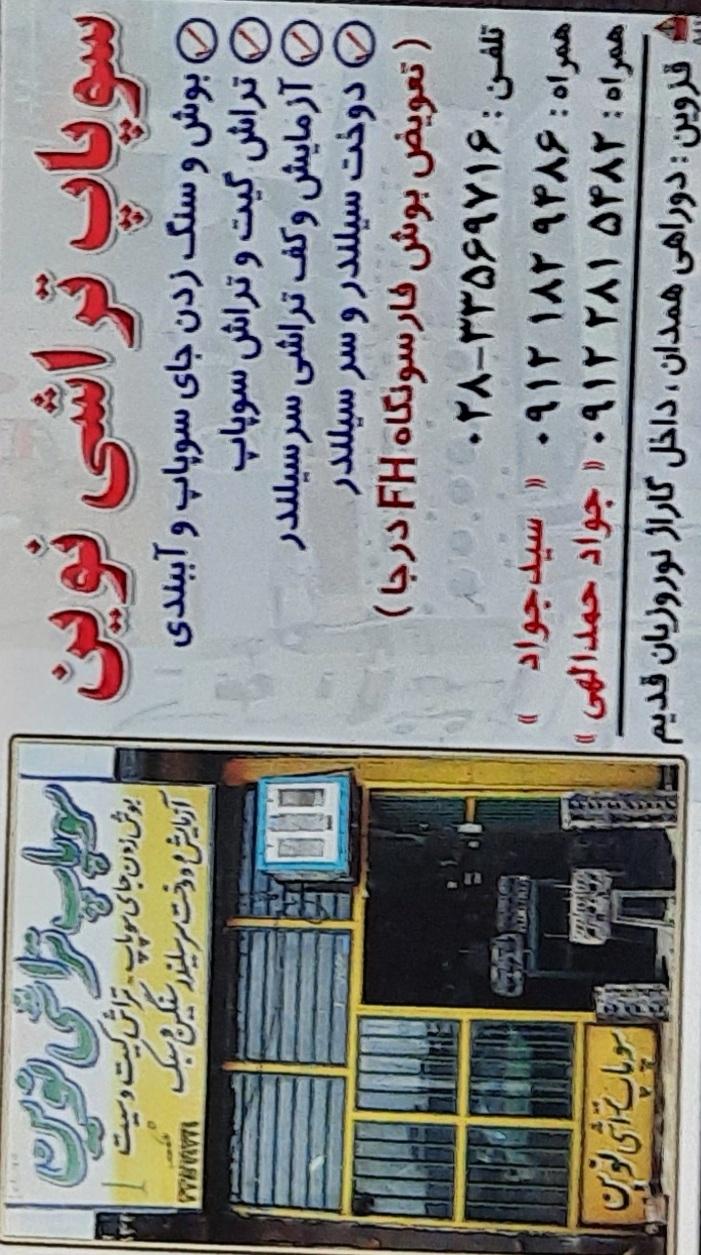 سوپاپ تراشی نوین
بوش و سنگ زدن جای سوپاپ و آببندی
تراش گیت و تراش سوپاپ
آزمایش و کف تراشی سرسیلندر
دوخت سیلندر و سر سیلندر
( تعویض بوش فارسونگاه FH درجا )
تلفن : ۰۲۸-۳۳۵۶۹۷۱۶
همراه : ۰۹۱۲ ۱۸۲ ۹۳۸۶ « سید جواد »
همراه : ۰۹۱۲ ۲۸۱ ۵۳۸۲ « جواد حمدالهی »
قزوین : دوراهی همدان ، داخل گاراژ نوروزیان قدیم
سوپاپ تراشی نوین
بوش زدن جای سوپاپ - تراش گیت و سیت
آزمایش و دوخت سرسیلندر سنگین و سبک
سوپاپ تراشی نوین